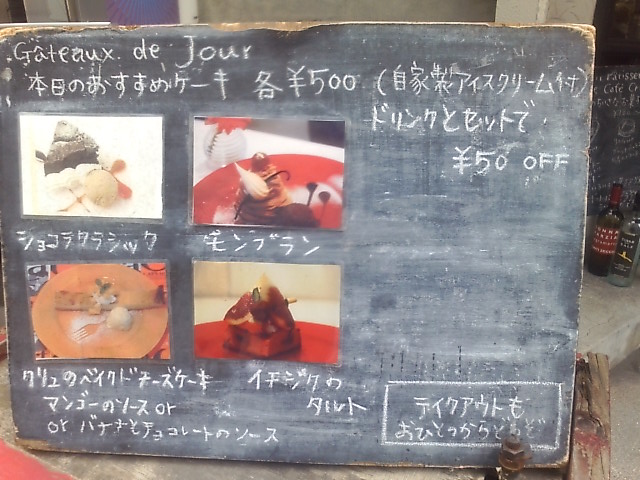 Gâteaux de Jour
本日のおすすめケーキ 各￥500 (自家製アイスクリーム付)
ドリンクとセットで
￥50 OFF
ショコラクラシック
モンブラン
クリュのベイクドチーズケーキ
マンゴーのソース or
or バナナとチョコレートのソース
イチジクの
タルト
テイクアウトも
おひとつからどうぞ